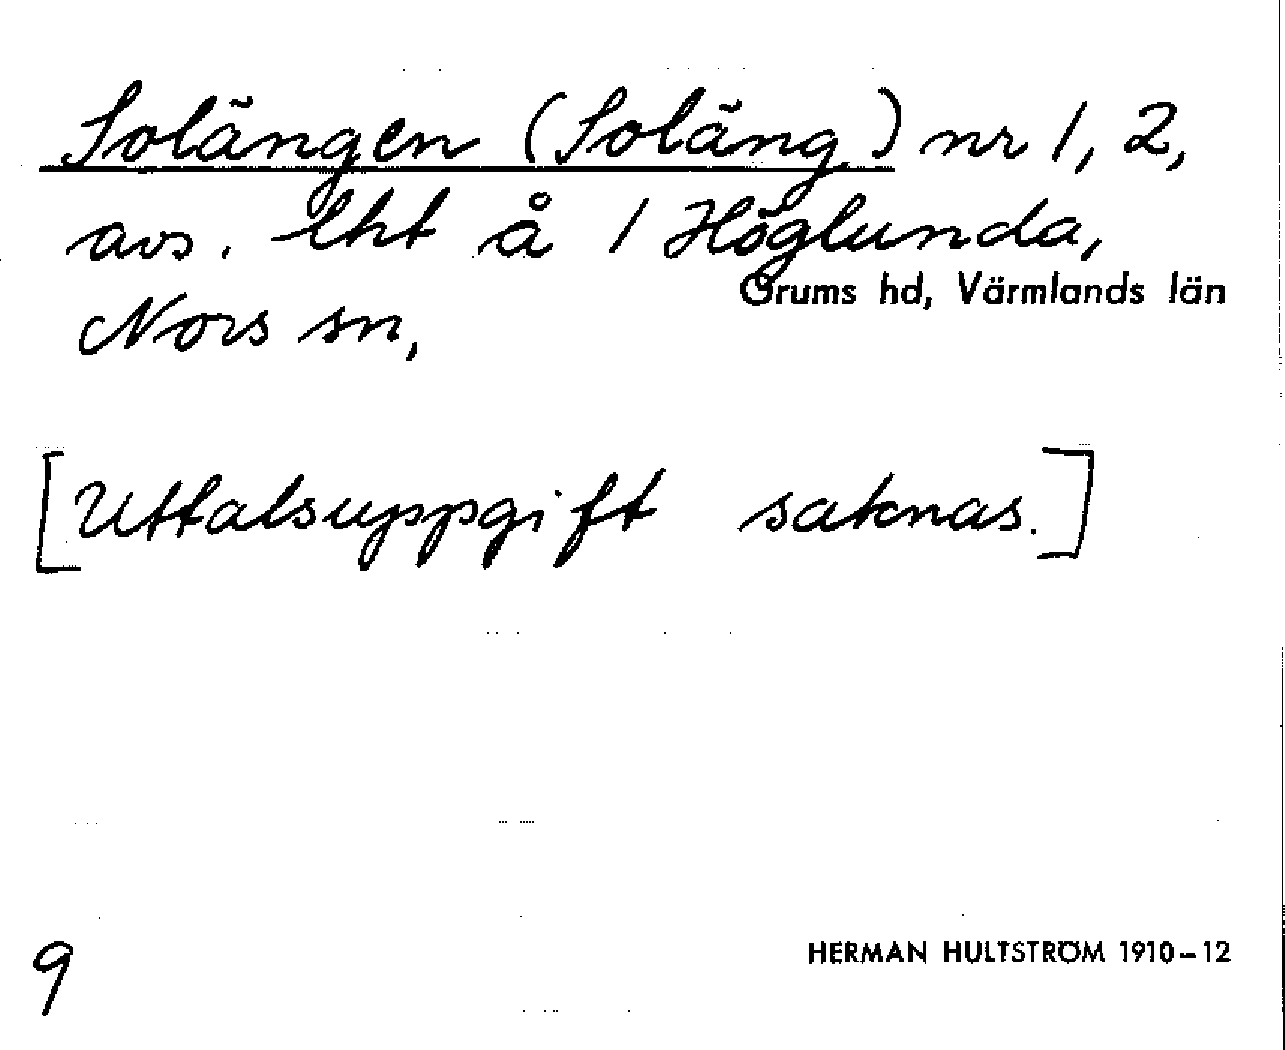 Solängen (Soläng) nr 1, 2,
avs. lht å 1 Höglunda,
Grums hd, Värmlands län
Nors sn,
[Uttalsuppgift saknas.]
9
HERMAN HULTSTRÖM 1910–12